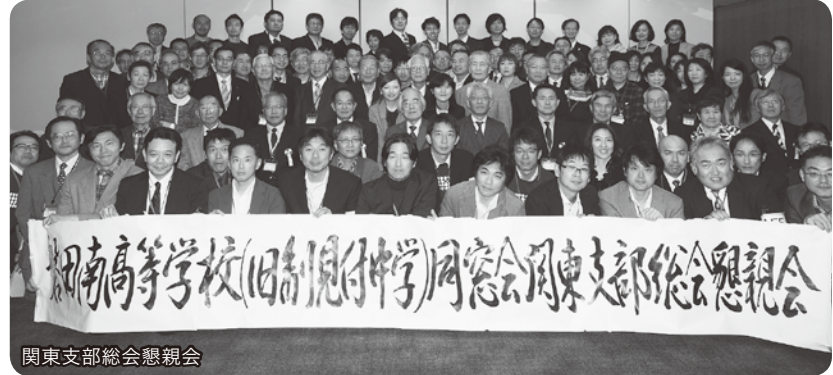 磐田南高等学校(旧制見付中学)同窓会関東支部総会懇親会
関東支部総会懇親会